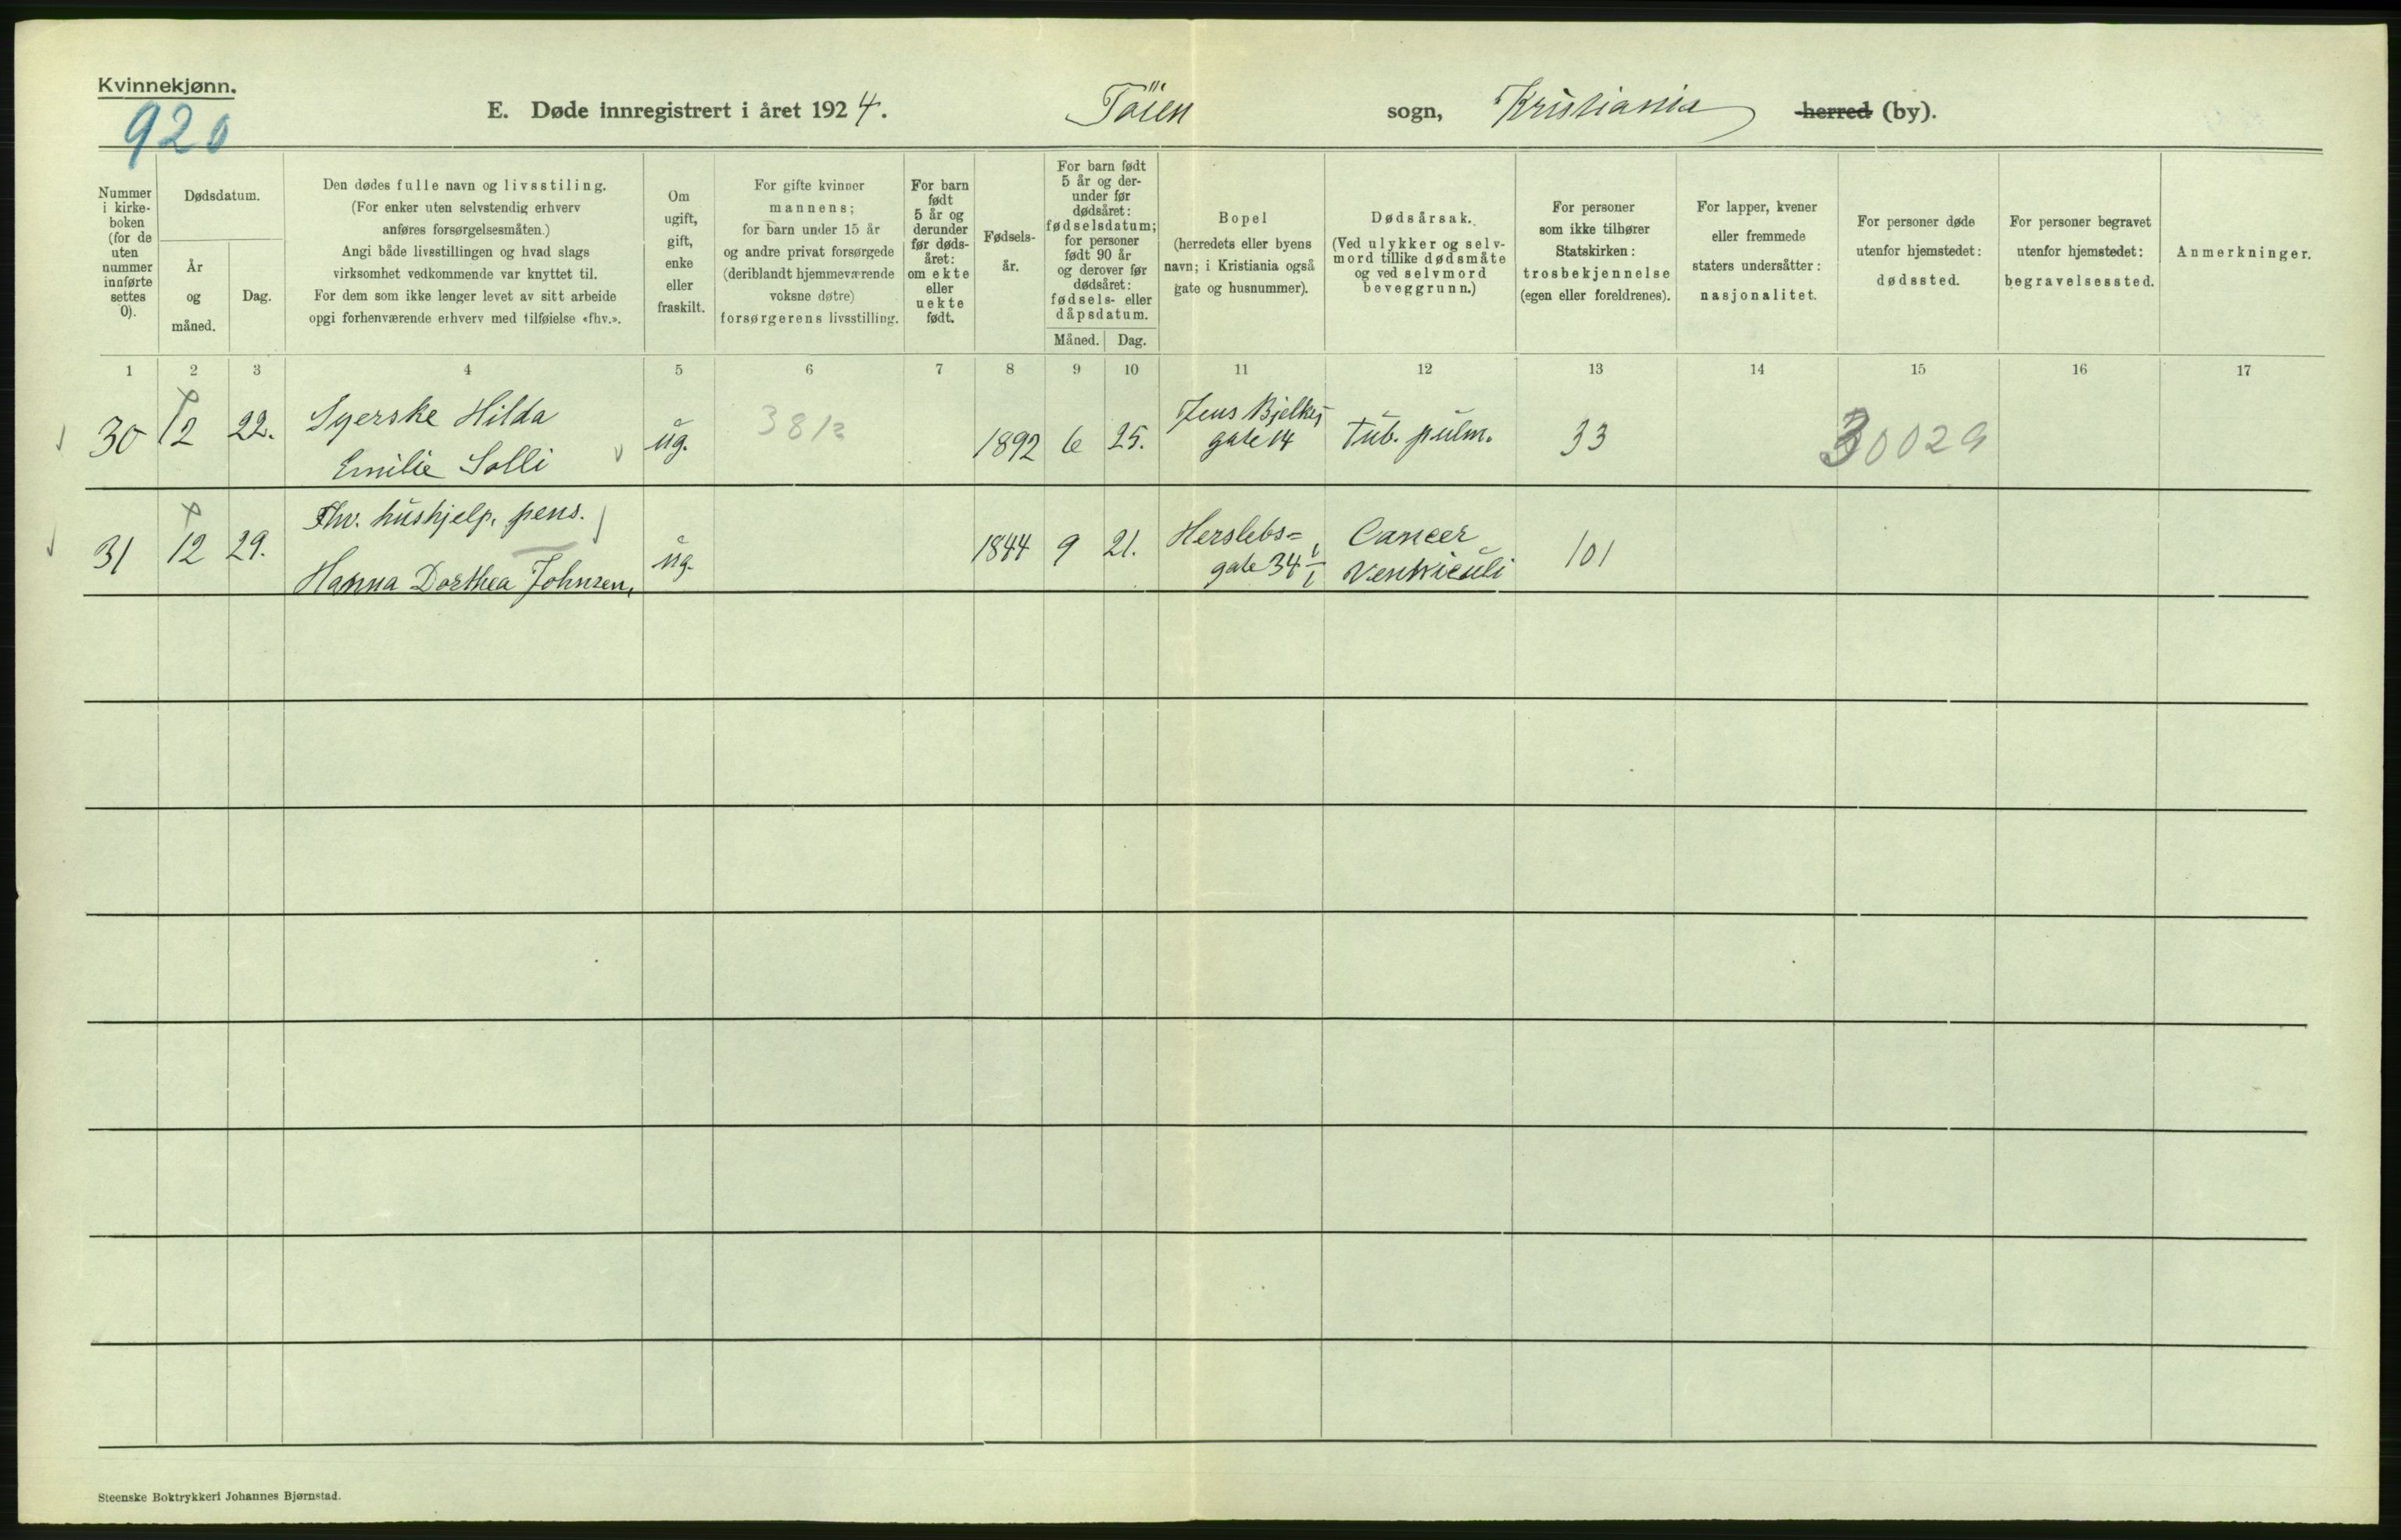 Kvinnekjønn.
920
E. Døde innregistrert i året 1924. Töien sogn, Kristiania herred (by).
Nummer
i kirke-
boken
(for de
uten
nummer
innførte
settes
0).
Dødsdatum.
År
og
måned.
Dag.
Den dødes fulle navn og livsstiling.
(For enker uten selvstendig erhverv
anføres forsørgelsesmåten.)
Angi både livsstillingen og hvad slags
virksomhet vedkommende var knyttet til.
For dem som ikke lenger levet av sitt arbeide
opgi forhenværende erhverv med tilføielse «fhv.».
Om
ugift,
gift,
enke
eller
fraskilt.
For gifte kvinner
mannens;
for barn under 15 år
og andre privat forsørgede
(deriblandt hjemmeværende
voksne døtre)
forsørgerens livsstilling.
For barn
født
5 år og
derunder
før døds-
året:
om ekte
eller
uekte
født.
Fødsels-
år.
For barn født
5 år og der-
under før
dødsåret:
fødselsdatum;
for personer
født 90 år
og derover før
dødsåret:
fødsels- eller
dåpsdatum.
Måned. Dag.
Bopel
(herredets eller byens
navn; i Kristiania også
gate og husnummer).
Dødsårsak.
(Ved ulykker og selv-
mord tillike dødsmåte
og ved selvmord
beveggrunn.)
For personer
som ikke tilhører
Statskirken:
trosbekjennelse
(egen eller foreldrenes).
For lapper, kvener
eller fremmede
staters undersåtter:
nasjonalitet.
For personer døde
utenfor hjemstedet:
dødssted.
For personer begravet
utenfor hjemstedet:
begravelsessted.
Anmerkninger.
1 2 3 4 5 6 7 8 9 10 11 12 13 14 15 16 17
30 12 22. Syerske Hilda
Emilie Solli
ug. 381 1892 6 25. Jens Bjelkes
gate 14
Tub. pulm. 33 30029
31 12 29. Fhv. hushjelp, pens.
Hanna Dorthea Johnsen,
ug. 1844 9 21. Herslebs=
gate 34 I
Cancer
Ventriculi
101
Steenske Boktrykkeri Johannes Bjørnstad.